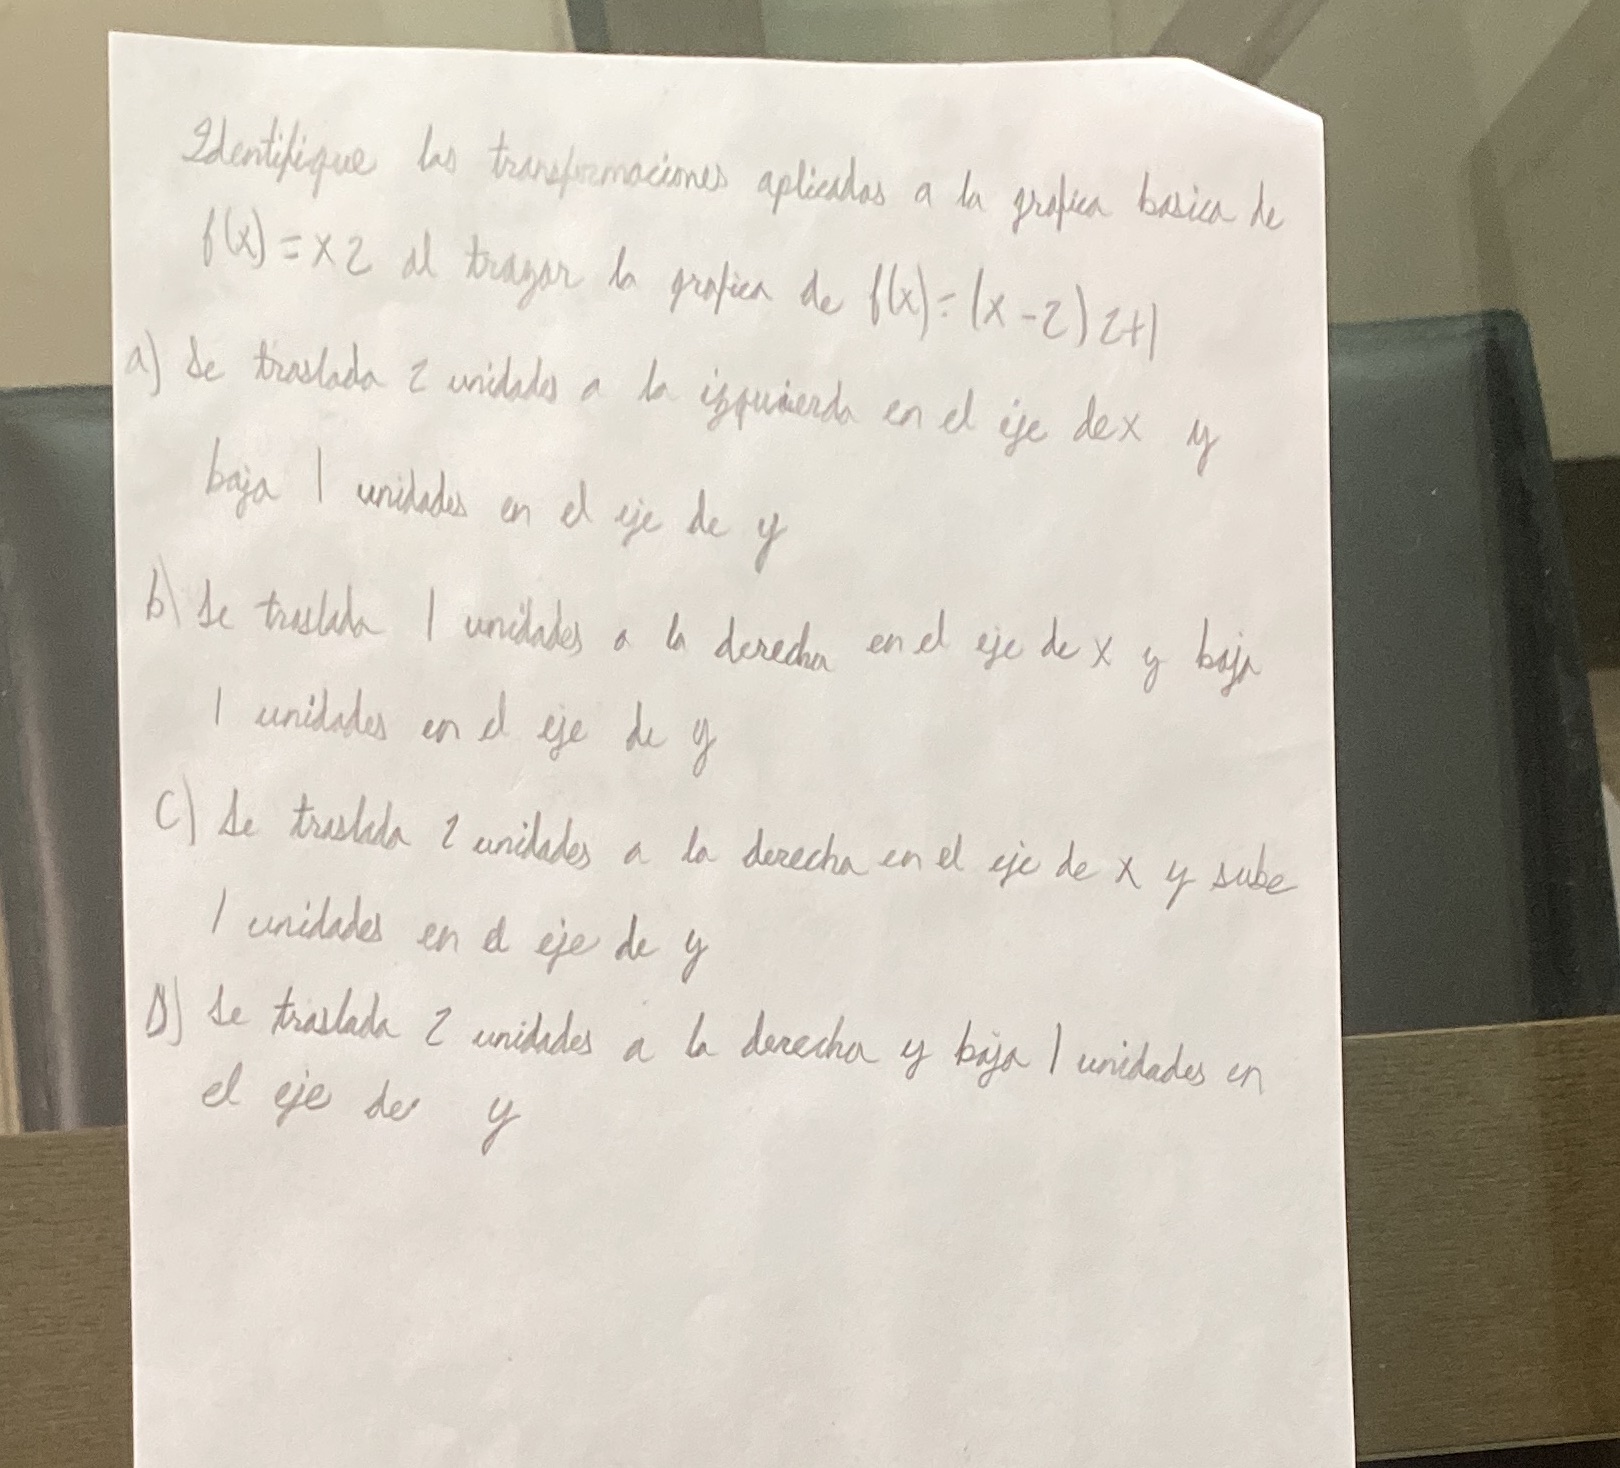 Identifique las transformaciones aplicadas a la grafica basica de
f(x) = x2 al trazar la grafica de f(x) = (x-2)2+1
a) Se traslada 2 unidades a la izquierda en el eje de x y
baja 1 unidades en el eje de y
b) Se traslada 1 unidades a la derecha en el eje de x y baja
1 unidades en el eje de y
C) Se traslada 2 unidades a la derecha en el eje de x y sube
1 unidades en el eje de y
D) Se traslada 2 unidades a la derecha y baja 1 unidades en
el eje de y